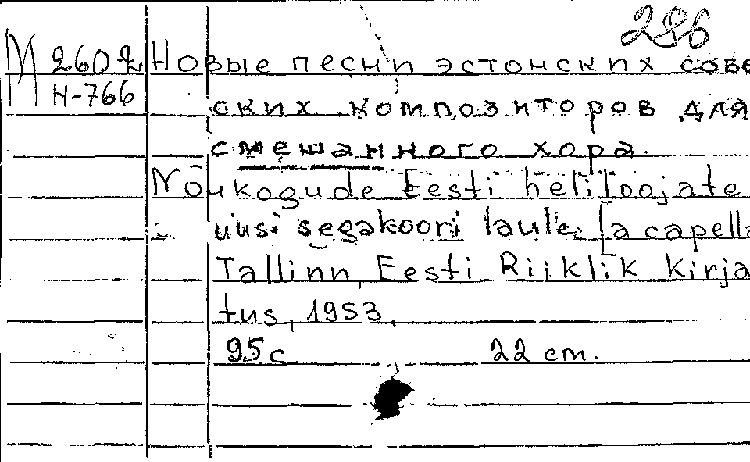 286
М 2602 Новые песни эстонских сове
Н-766 ских композиторов для
смешанного хора.
Nõukogude Eesti heliloojate
uusi segakoori laule [a capella
Tallinn, Eesti Riiklik Kirja
tus, 1953.
95 с 22 cm.